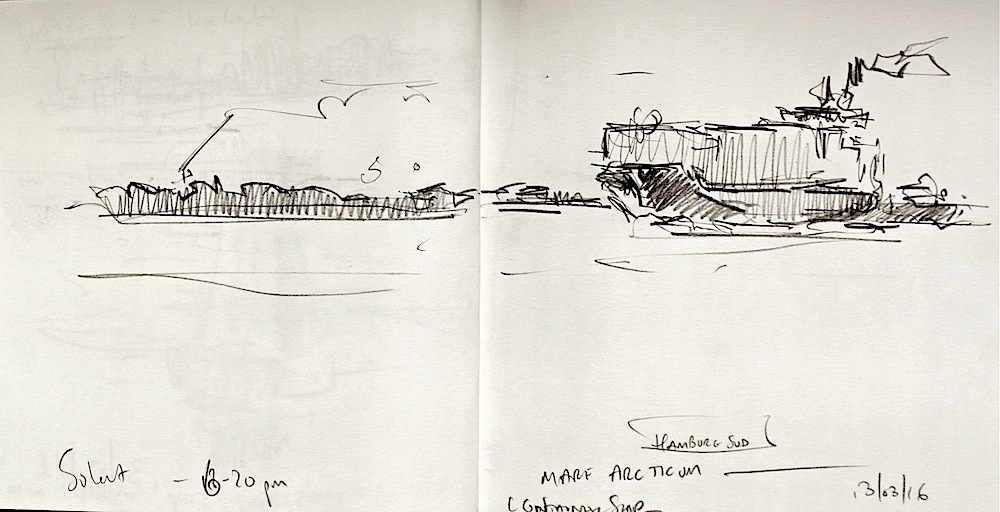 Solent - 6-20 pm
HAMBURG SUD
MARE ARCTICUM
13/03/16
CONTAINER SHIP